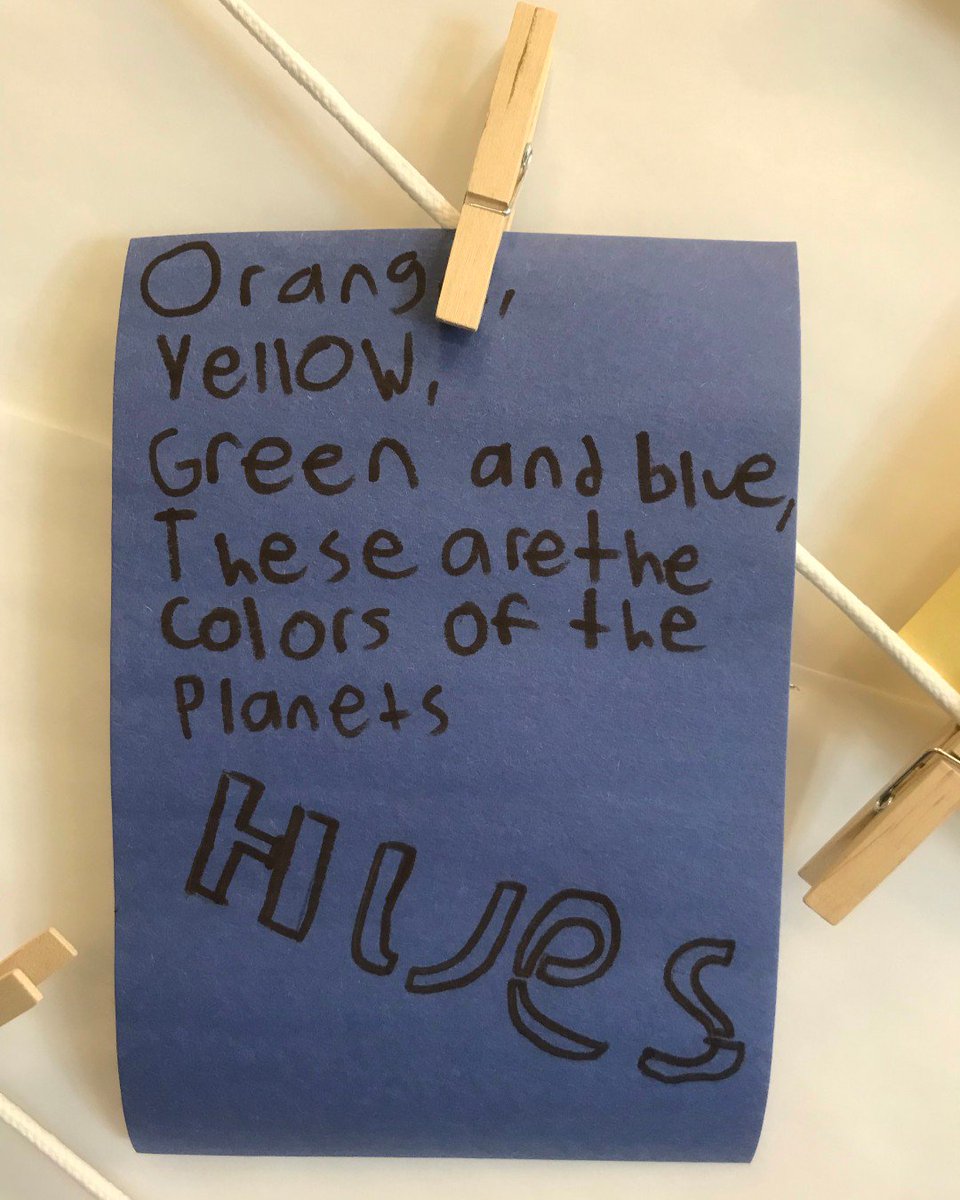 Orange,
Yellow,
Green and blue,
These are the
Colors of the
Planets
Hues